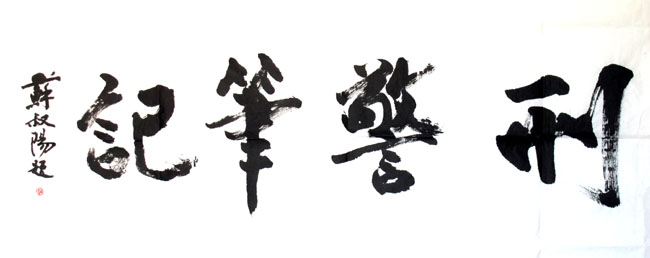 刑警筆記
蘇叔陽題